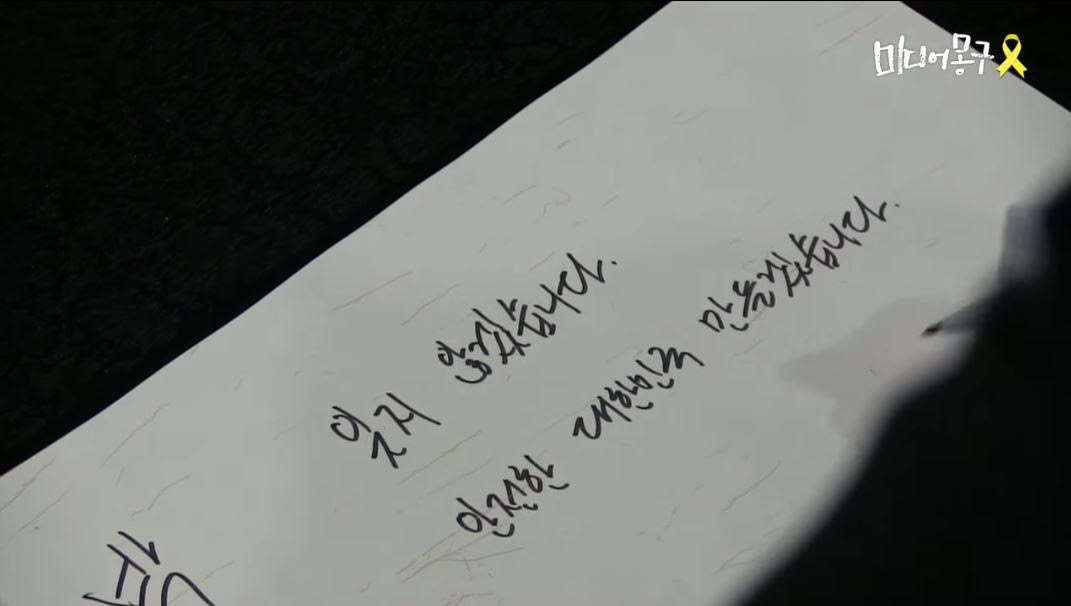 미디어몽구
잊지 않겠습니다.
안전한 대한민국 만들겠습니다.